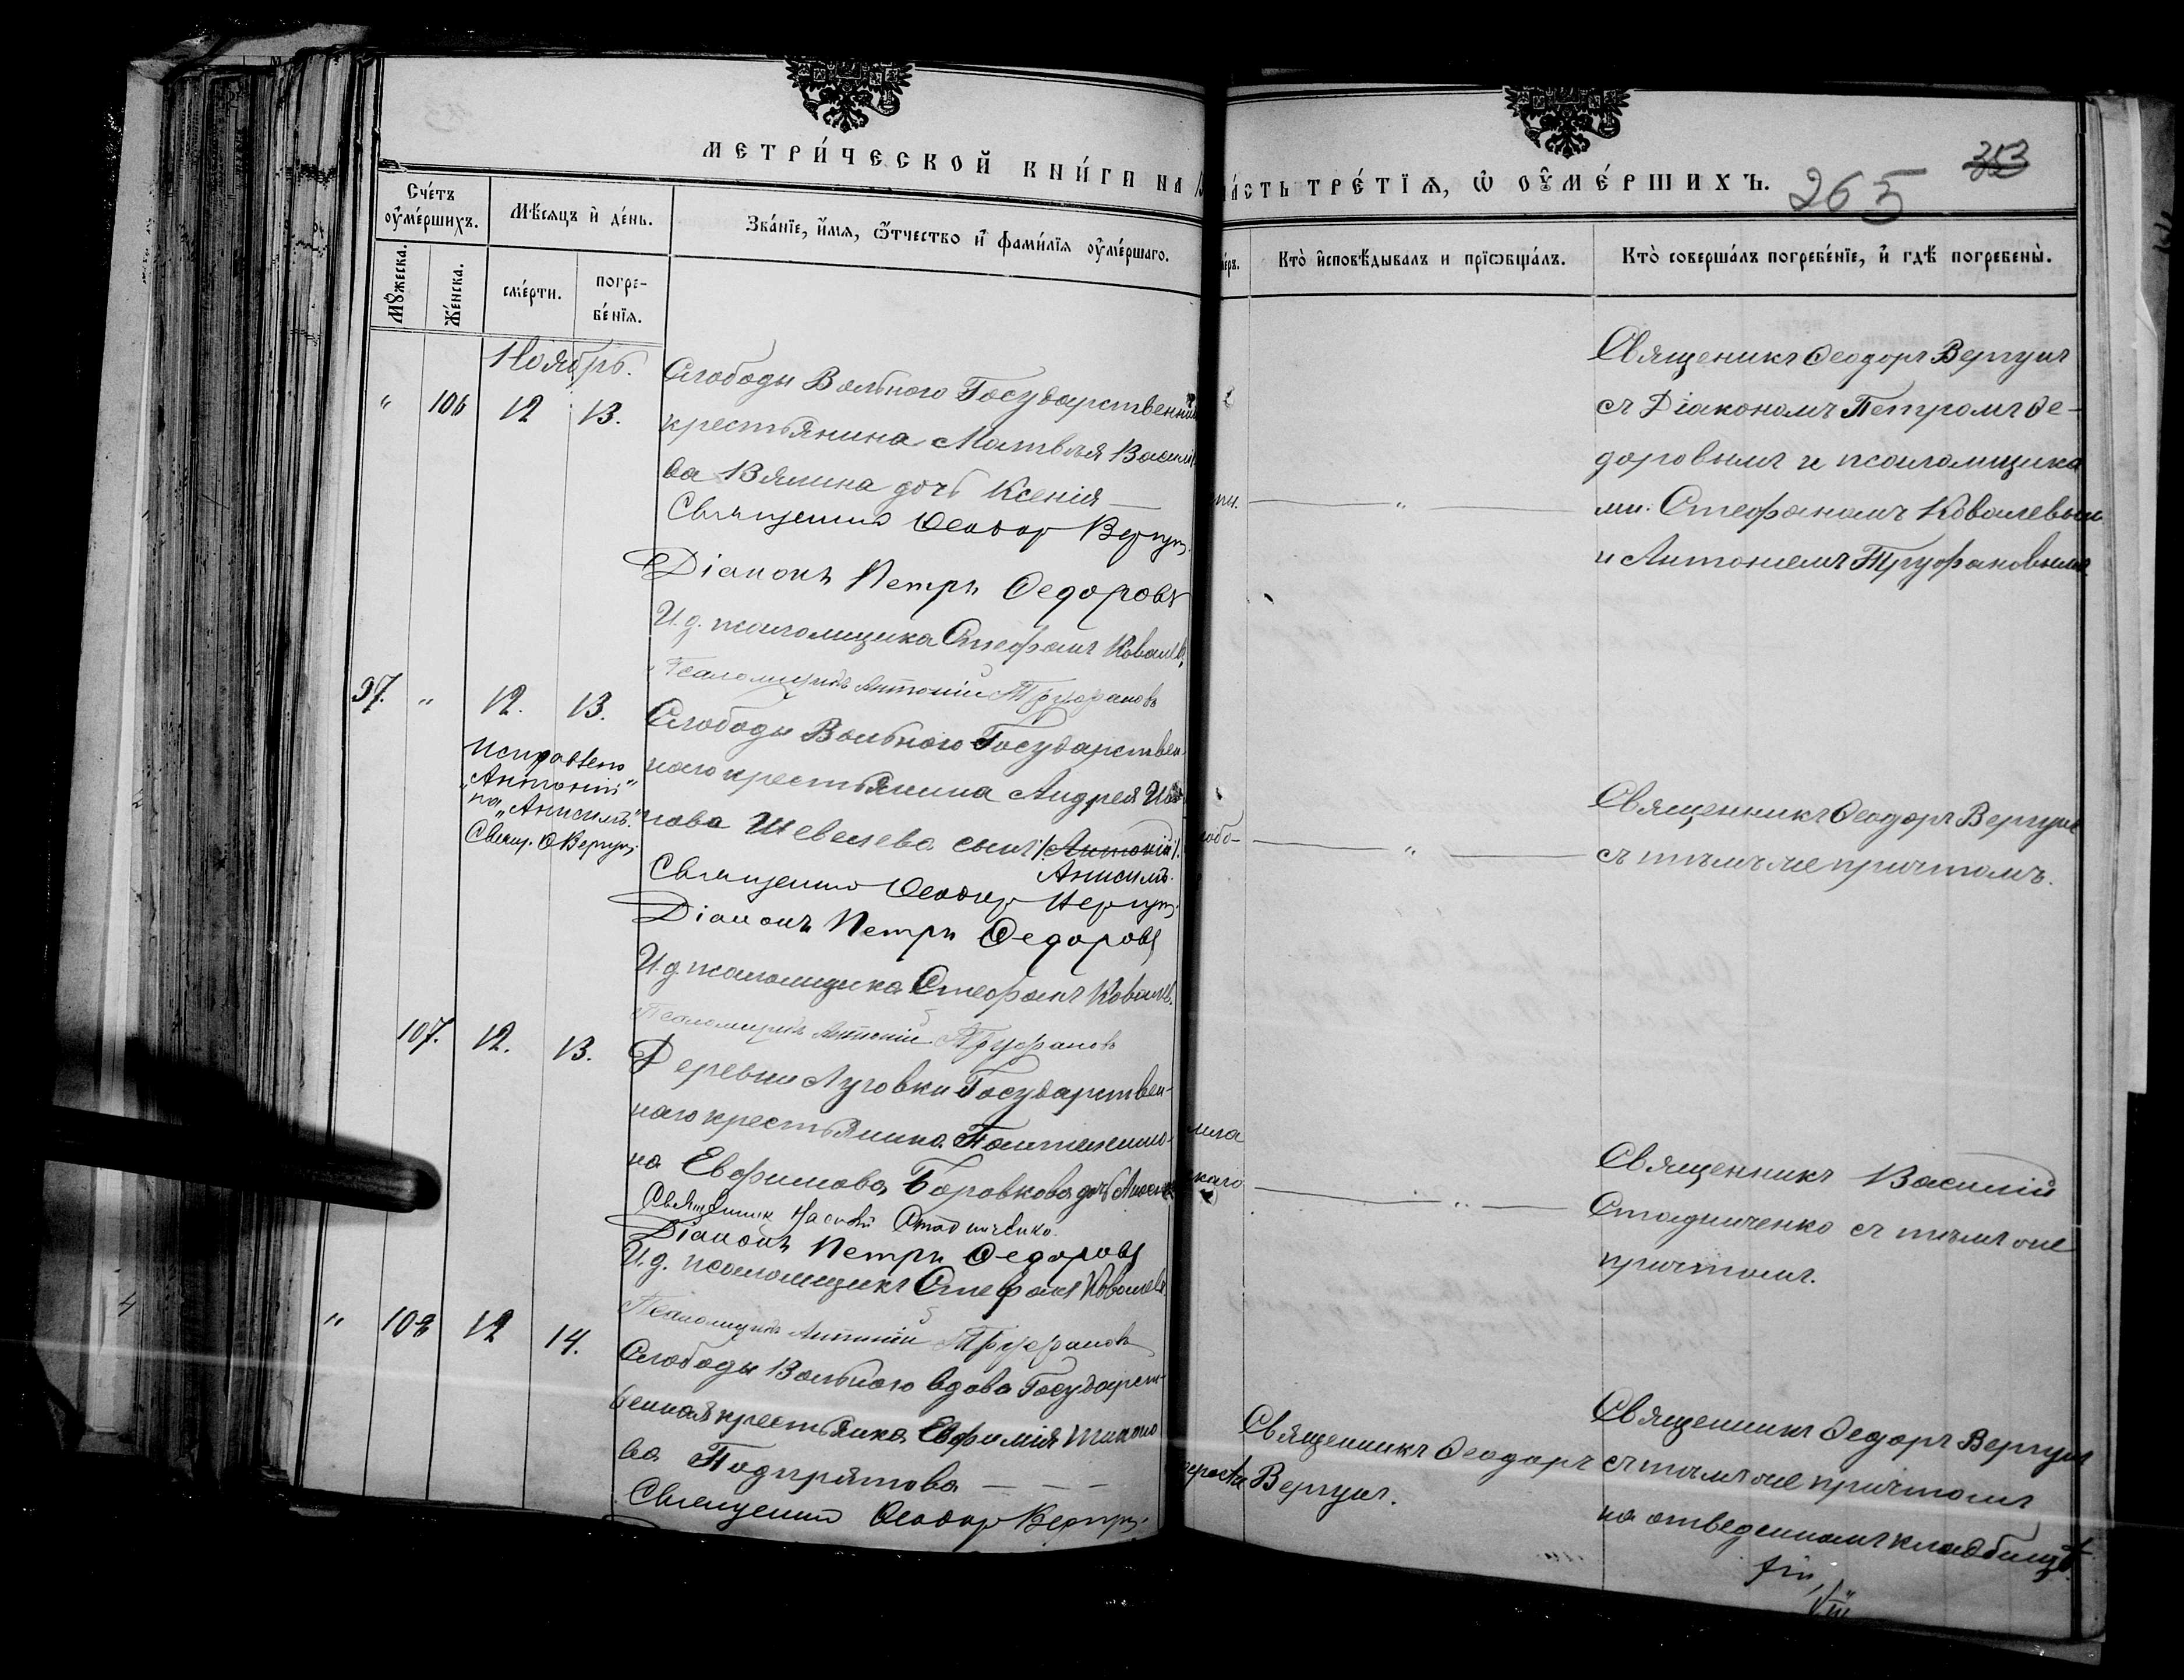 МЕТРИ́ЧЕСКОЙ КНИ́ГИ НА
ЧА́СТЬ ТРЕ́ТІѦ, Ѡ҆ ОУ҆МЕ́РШИХЪ.
265
353
Сче́тъ оу҆ме́ршихъ.
Мѣ́сѧцъ и҆ де́нь.
Зва́нїе, и҆́мѧ, ѻ҆́тчество и҆ фами́лїѧ оу҆ме́ршаго.
Кто̀ и҆сповѣ́дывалъ и прїѡбща́лъ.
Кто̀ соверша́лъ погребе́нїе, и҆ гдѣ̀ погребены̀.
Мꙋ́жеска.
Же́нска.
сме́рти.
погре-
бе́нїѧ.
Ноябрь.
" 106 12 13.
Слободы Вольного Государственна
крестьянина Матвѣя Василь
ва Вялина дочь Ксенія —
Священникъ Ѳеодоръ Вергунъ.
Діаконъ Петръ Ѳедоровъ
И. д. псаломщика Стефанъ Ковалевъ
Псаломщикъ Антоній Труфановъ
— " —
Священикъ Ѳеодоръ Вергунъ
съ Діакономъ Петромъ Ѳе-
доровымъ и псаломщика
ми: Стефаномъ Ковалевым
и Антоніемъ Труфановымъ
37. " 12. 13.
Исправлено
"Антоній"
на "Анисимъ."
Свящ. Ѳ Вергунъ.
Слободы Вольного Государствен-
наго крестьянина Андрея Ива
нова Шевелева сынъ /Антоній/.
Анисимъ.
Священникъ Ѳеодоръ Вергунъ.
Діаконъ Петръ Ѳедоровъ
И. д. псаломщика Стефанъ Ковалев.
Псаломщикъ Антоній Труфановъ
— " —
Священникъ Ѳеодоръ Вергунъ
съ тѣмъ же причтомъ.
107. 12. 13.
Деревни Луговки Государствен-
наго крестьянина Пантелеимо-
на Евфимова Боровкова дочь
Священникъ Василій Стадниченко.
Діаконъ Петръ Ѳедоровъ
И. д. псаломщикъ Стефанъ Ковалевъ
Псаломщикъ Антоній Труфановъ
— " —
Священникъ Василій
Стадниченко съ тѣмъ же
причтомъ.
" 108 12 14.
Слободы Вольного вдова Государст-
венная крестьянка Евфимія
ва Подпрятова — — —
Священникъ Ѳеодоръ Вергунъ.
Священникъ Ѳеодоръ
Вергунъ.
Священникъ Ѳедоръ Вергунъ
съ тѣмъ же причтомъ
на отведенномъ кладбищѣ.